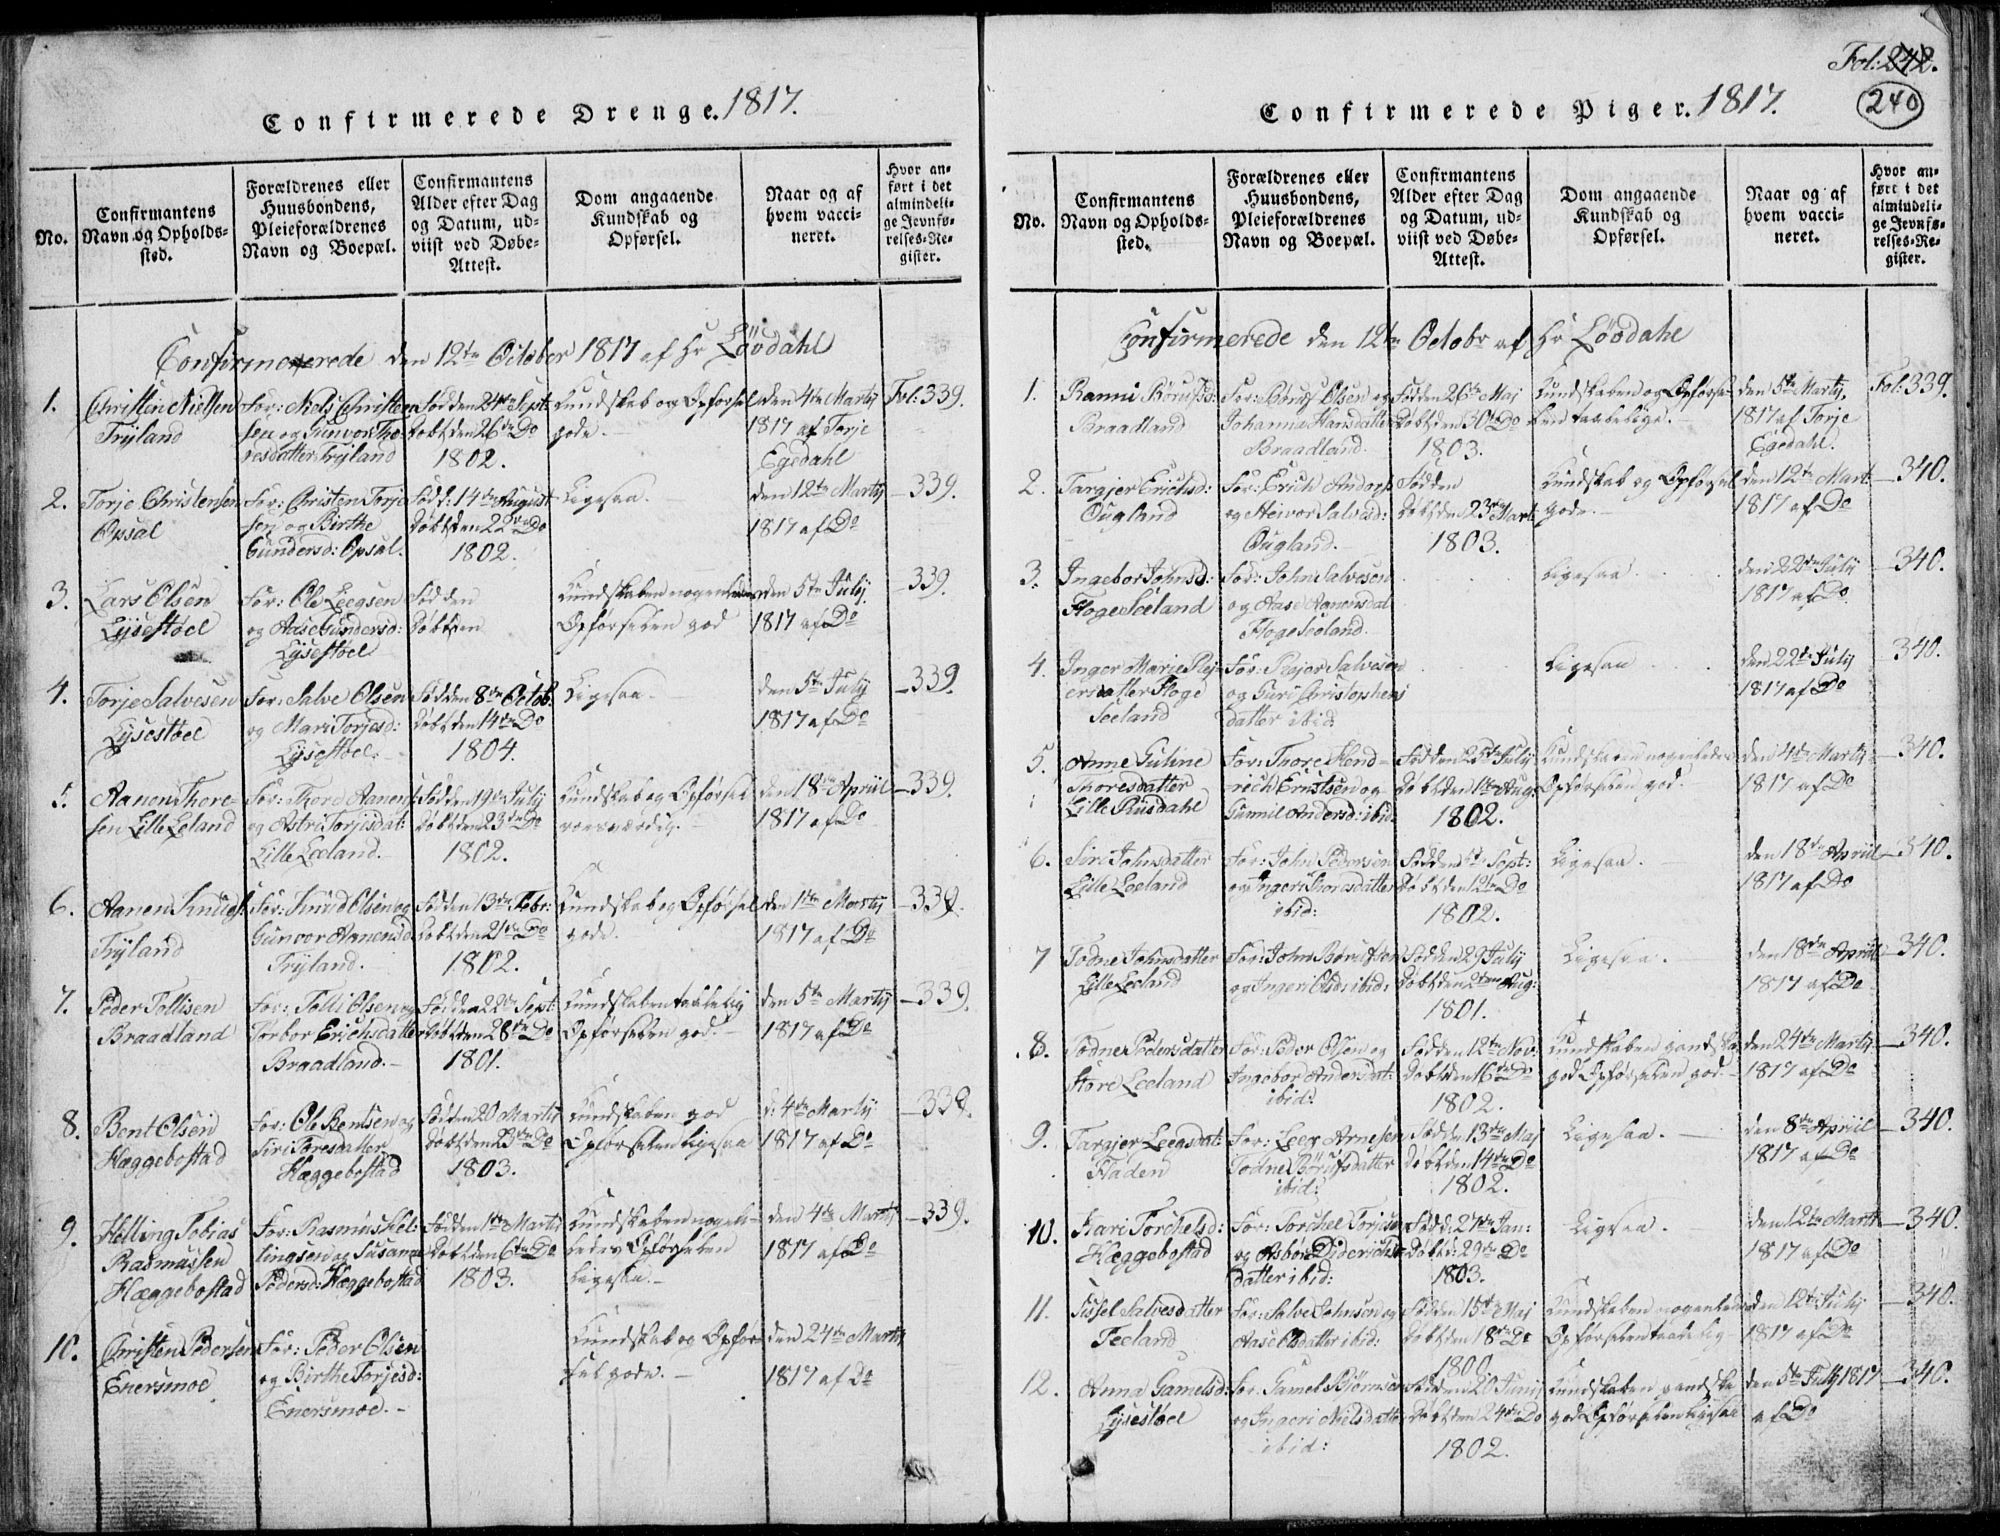 Confirmerede Drenge. 1817.
No.
Confirmantens
Navn og Opholds-
sted.
Forældrenes eller
Huusbondens,
Pleieforældrenes
Navn og Boepæl.
Confirmantens
Alder efter Dag
og Datum, ud-
viist ved Døbe-
Attest.
Dom angaaende
Kundskab og
Opførsel.
Naar og af
hvem vacci-
neret.
Hvor an-
ført i det
almindeli-
ge Jevnfø-
relses-Re-
gister.
Confirmerede den 12te October 1817 af Hr Løvdahl
1.
Christen Nielsen
Tryland
For: Niels Christen
sen og Gunvor Tho-
resdatter Tryland
Født den 21de Sept:
Døbt den 26de Do
1802.
Kundskab og Opførsel
gode.
den 4de Marty
1817 af Torje
Egedahl
Fol: 339.
2.
Torje Christensen
Opsal
For: Christen Torje
sen og Birthe
Gundersd: Opsal.
Fød: 14de August
Døbt den 22de Do
1802.
Ligesaa.
den 12te Marty
1817 af Do
339.
3.
Lars Olsen
Lysestøel
For: Ole Leegsen
og Aase Gundersd:
Lysestøel
Født den
Døbt den
Kundskaben nogenledes
Opførselen god
den 5te July
1817 af Do
339.
4.
Torje Salvesen
Lysestøel
For: Salve Olsen
og Mari Torjesd:
Lysestøel.
Født den 8de Octob.
Døbt den 14de Do
1804.
Ligesaa.
den 5te July
1817 af Do
339.
5.
Aanen Thore-
sen Lille Leland
For: Thore Aanens:
og Astri Torjisdat:
Lille Leeland.
Født den 19de July
Døbt den 23de Do
1802.
Kundskab og Opførsel
roesværdig.
den 18de Apriil
1817 af Do
339.
6.
Aanen Knuds:
Tryland
For: Knud Olsen og
Gunvor Aanensd
Tryland.
Født den 13de Febr:
Døbt den 21de Do
1802.
Kundskab og Opførsel
gode.
den 1te Marty
1817 af Do
339.
7.
Peder Tollisen
Braadland
For: Tolli Olsen og
Torbor Erichsdatter
Braadland.
Født den 22de Sept
Døbt den 28de Do
1801.
Kundskaben taalelig
Opførselen god.
den 5te Marty
1817 af Do
339.
8.
Bent Olsen
Hæggebostad
For: Ole Bentsen og
Siri Toresdatter
Hæggebostad
Født den 20 Martii
Døbt den 23de Do
1803.
Kundskaben god
Opførselen ligesaa
d: 4de Marty
1817 af Do
339.
9.
Helling Tobias
Rasmussen
Hæggebostad
For: Rasmus Hel-
lingsen og Susanna
Pedersd: Hæggebostad
Født den 1te Marty
Døbt den 6te Do
1803.
Kundskaben nogen-
ledes Opførselen
ligesaa.
den 4de Marty
1817 af Do
339.
10.
Christen Pedersen
Enersmoe
For: Peder Olsen
og Birthe Torjesd:
Enersmoe.
Kundskab og Opfør-
sel gode.
den 24de Marty
1817 af Do
Fol: 242.
240
Confirmerede Piger. 1817.
No.
Confirmantens
Navn og Opholds-
sted.
Forældrenes eller
Huusbondens,
Pleieforældrenes
Navn og Boepæl.
Confirmantens
Alder efter Dag
og Datum, ud-
viist ved Døbe-
Attest.
Dom angaaende
Kundskab og
Opførsel.
Naar og af
hvem vacci-
neret.
Hvor an-
ført i det
almindeli-
ge Jevnfø-
relses-Re-
gister.
Confirmerede den 12te Octobr af Hr Løvdahl
1.
Ranni Børufsd:
Braadland
For: Børuf Olsen og
Johanna Hansdatter
Braadland.
Født den 26de Maj
Døbt den 30te Do
1803.
Kundskaben og Opførse-
len taalelige.
den 5te Marty
1817 af Torje
Egedahl.
Fol: 339.
2.
Targjer Erichsd:
Ougland
For: Erich Anders:
og Heivor Salvesd:
Ougland.
Født den
Døbt den 23de Marti
1803.
Kundskab og Opførsel
gode.
den 12te Mart:
1817 af Do
340.
3.
Ingebor Johnsd:
Hoge Seeland
For: John Salvesen
og Aase Aanensdat
Hoge Seeland.
Ligesaa
den 22de July
1817 af Do
340.
4.
Inger Marje Rej-
ersdatter Hoge
Seeland
For: Rejer Salvesen
og Guri Christophers
datter ibid
Ligesaa
den 22de July
1817 af Do
340.
5.
Anne Guline
Thoresdatter
Lille Rusdahl
For: Thore Hend-
rich Erntsen og
Gunnil Andersd: ibid:
Født den 25de July
Døbt den 1te Aug:
1802.
Kundskaben nogenledes
Opførselen god.
den 4de Marty
1817 af Do
340.
6.
Siri Johnsdatter
Lille Leeland
For: John Pedersen
og Ingeri Thoresdatter
ibid:
Født den Sept:
Døbt den 12te Do
1802.
Ligesaa.
den 18de Apriil
1817 af Do
340.
7
Todne Johnsdatter
Lille Leeland
For: John Børufsen
og Ingeri Olsd: ibid:
Født den 29 July
Døbt den 2den Aug:
1801.
Ligesaa.
den 18de Apriil
1817 af Do
340.
8.
Todne Pedersdatter
Store Leeland
For: Peder Olsen og
Ingebor Andersdat:
ibid:
Født den 12te Nov:
Døbt den 16de Do
1802.
Kundskaben gandske
god Opførselen god.
den 24de Marty
1817 af Do
340.
9.
Targjer Leegsdat:
Fladen
For: Leeg Arnesen
Todne Børufsdatter
ibid:
Født den 13de Maj
Døbt den 14de Do
1802.
Ligesaa.
den 8de Apriil
1817 af Do
340.
10.
Kari Torchelsd:
Hæggebostad
For: Torchel Torjesen
og Asbør Diderichs-
datter ibid:
Født: 27de Jan:
Døbt: 29de Do
1803.
Ligesaa.
den 12te Marti
1817 af Do
340.
11.
Sissel Salvesdatter
Feeland
For: Salve Johnsen og
Aase Olsdatter ibid:
Født den 15de Maj
Døbt den 18de Do
1800.
Kundskaben nogenledes
Opførselen taalelig
den 12te July
1817 af Do
340.
12.
Anna Gamelsd:
Lysestøel
For: Gamel Bjørnsen
og Ingeri Nilsdatter
ibid:
Født den 20 Junij
Døbt den 24de Do
1802.
Kundskaben gandske
god Opførselen ligesaa
den 5te July 1817
af Do
340.